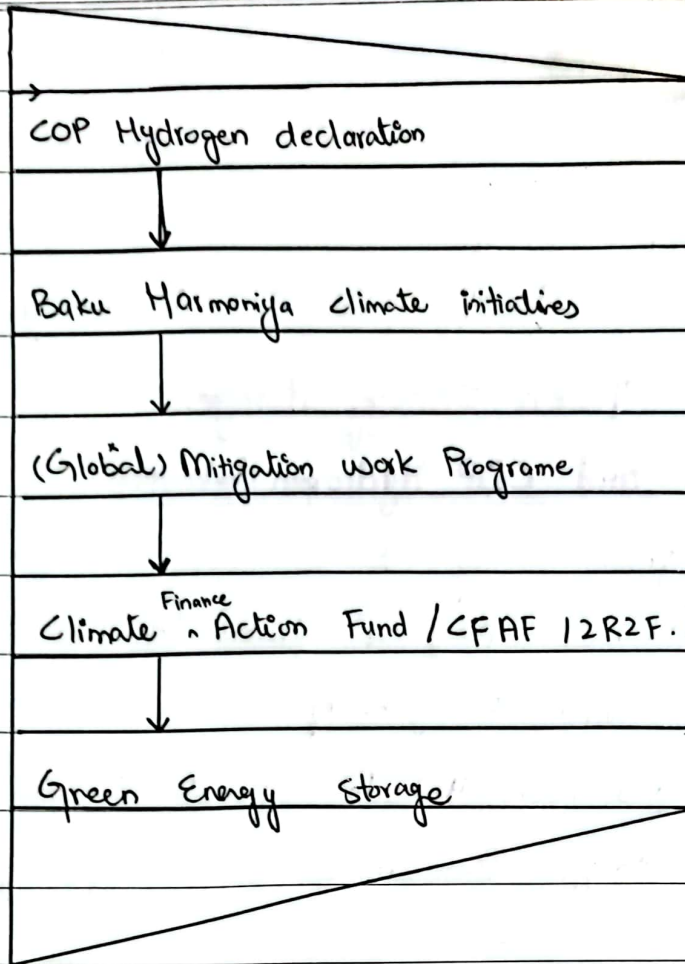 COP Hydrogen declaration
Baku Harmoniya climate initiatives
(Global) Mitigation work Programe
Climate Finance Action Fund / CFAF 12R2F.
Green Energy Storage